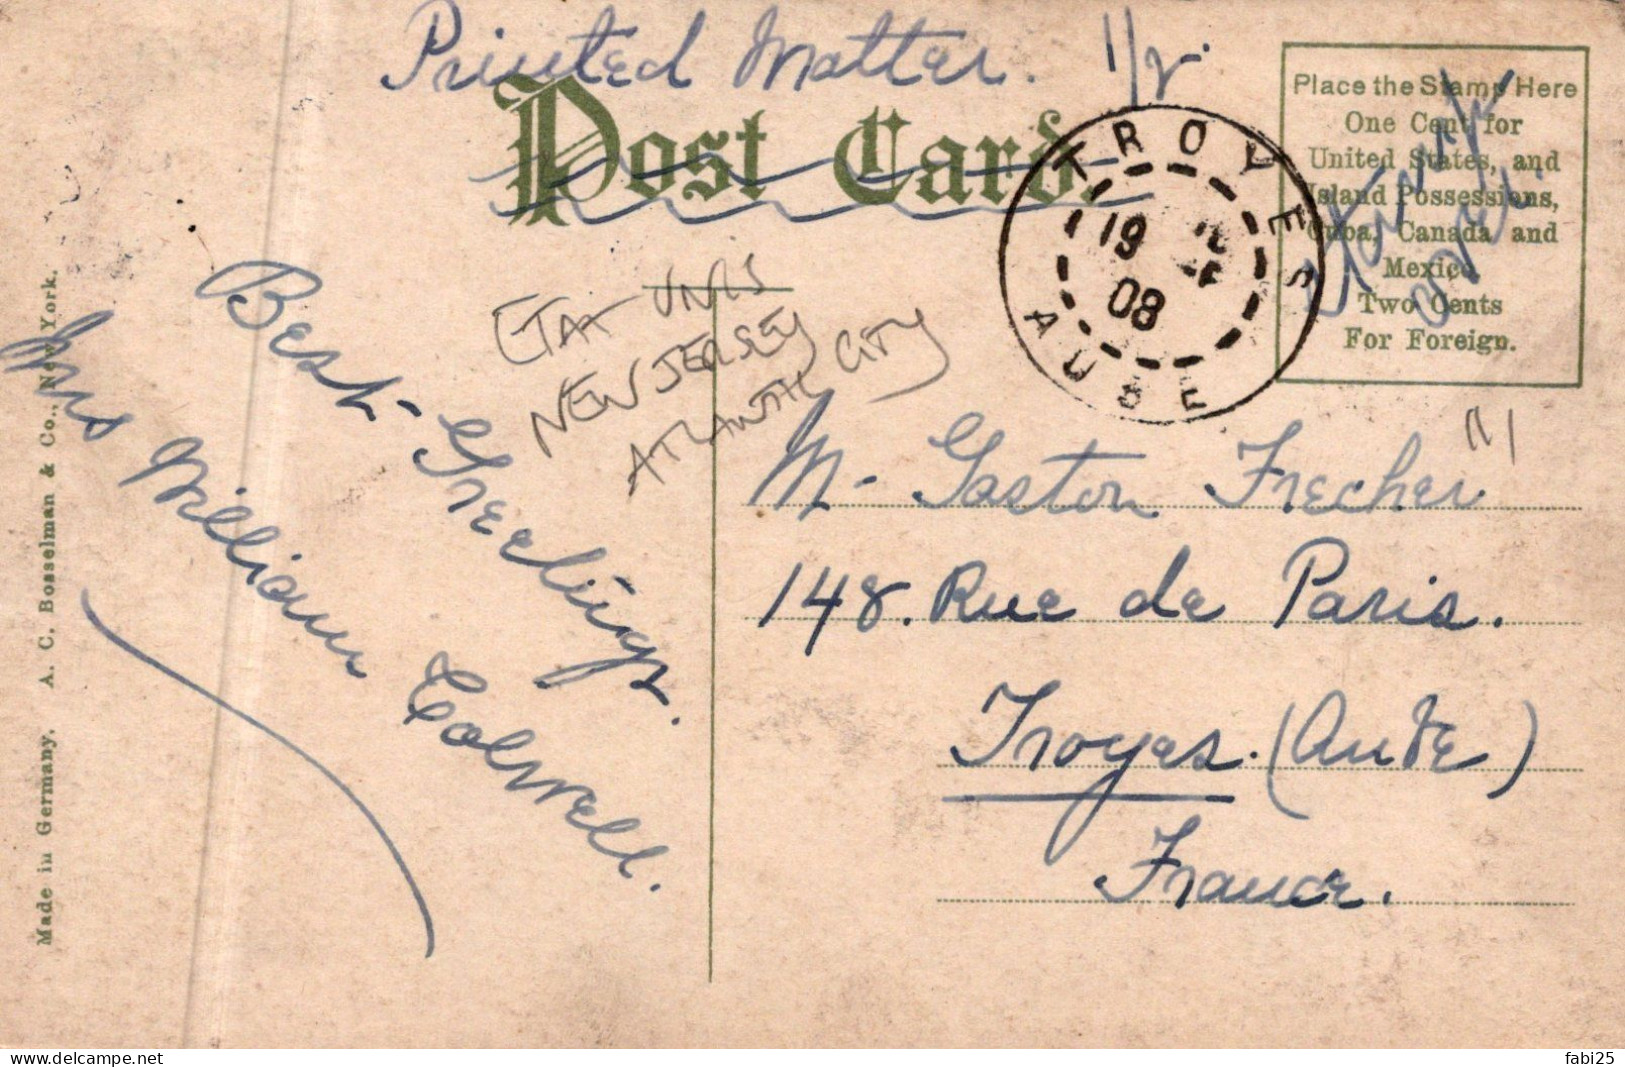 Printed Matter. 1/2.
Post Card.
Place the Stamp Here
One Cent for
United States, and
Island Possessions,
Cuba, Canada and
Mexico.
Two Cents
For Foreign.
Stamp
TROYES
19
08
AUBE
ETAT UNIS
NEW JERSEY
ATLANTIC CITY
Best-Greetings.
Mrs William Colwell.
M- Gaston Frecher
148. Rue de Paris.
Troyes. (Aube)
France.
Made in Germany. A. C. Bosselman & Co., New York.
fabi25